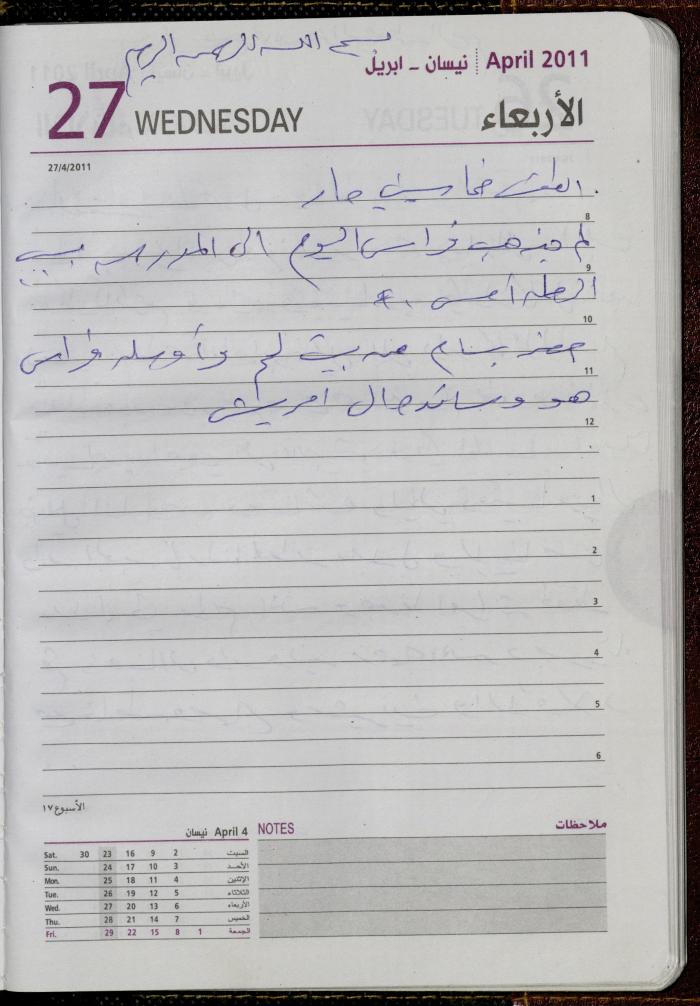 بسم الله الرحمن الرحيم
نيسان - ابريل April 2011
27 WEDNESDAY الأربعاء
27/4/2011
الطقس خماسيني حار
8
لم يذهب فراس اليوم الى المدرسه بسبب
9
الرحله أمس.
10
حضر بسام من بيت لحم وأوصله فراس
11
هو وسائد
12
1
2
3
4
5
6
الأسبوع ١٧
April 4 نيسان
Sat. 30 23 16 9 2 السبت
Sun. 24 17 10 3 الأحد
Mon. 25 18 11 4 الإثنين
Tue. 26 19 12 5 الثلاثاء
Wed. 27 20 13 6 الأربعاء
Thu. 28 21 14 7 الخميس
Fri. 29 22 15 8 1 الجمعة
NOTES ملاحظات